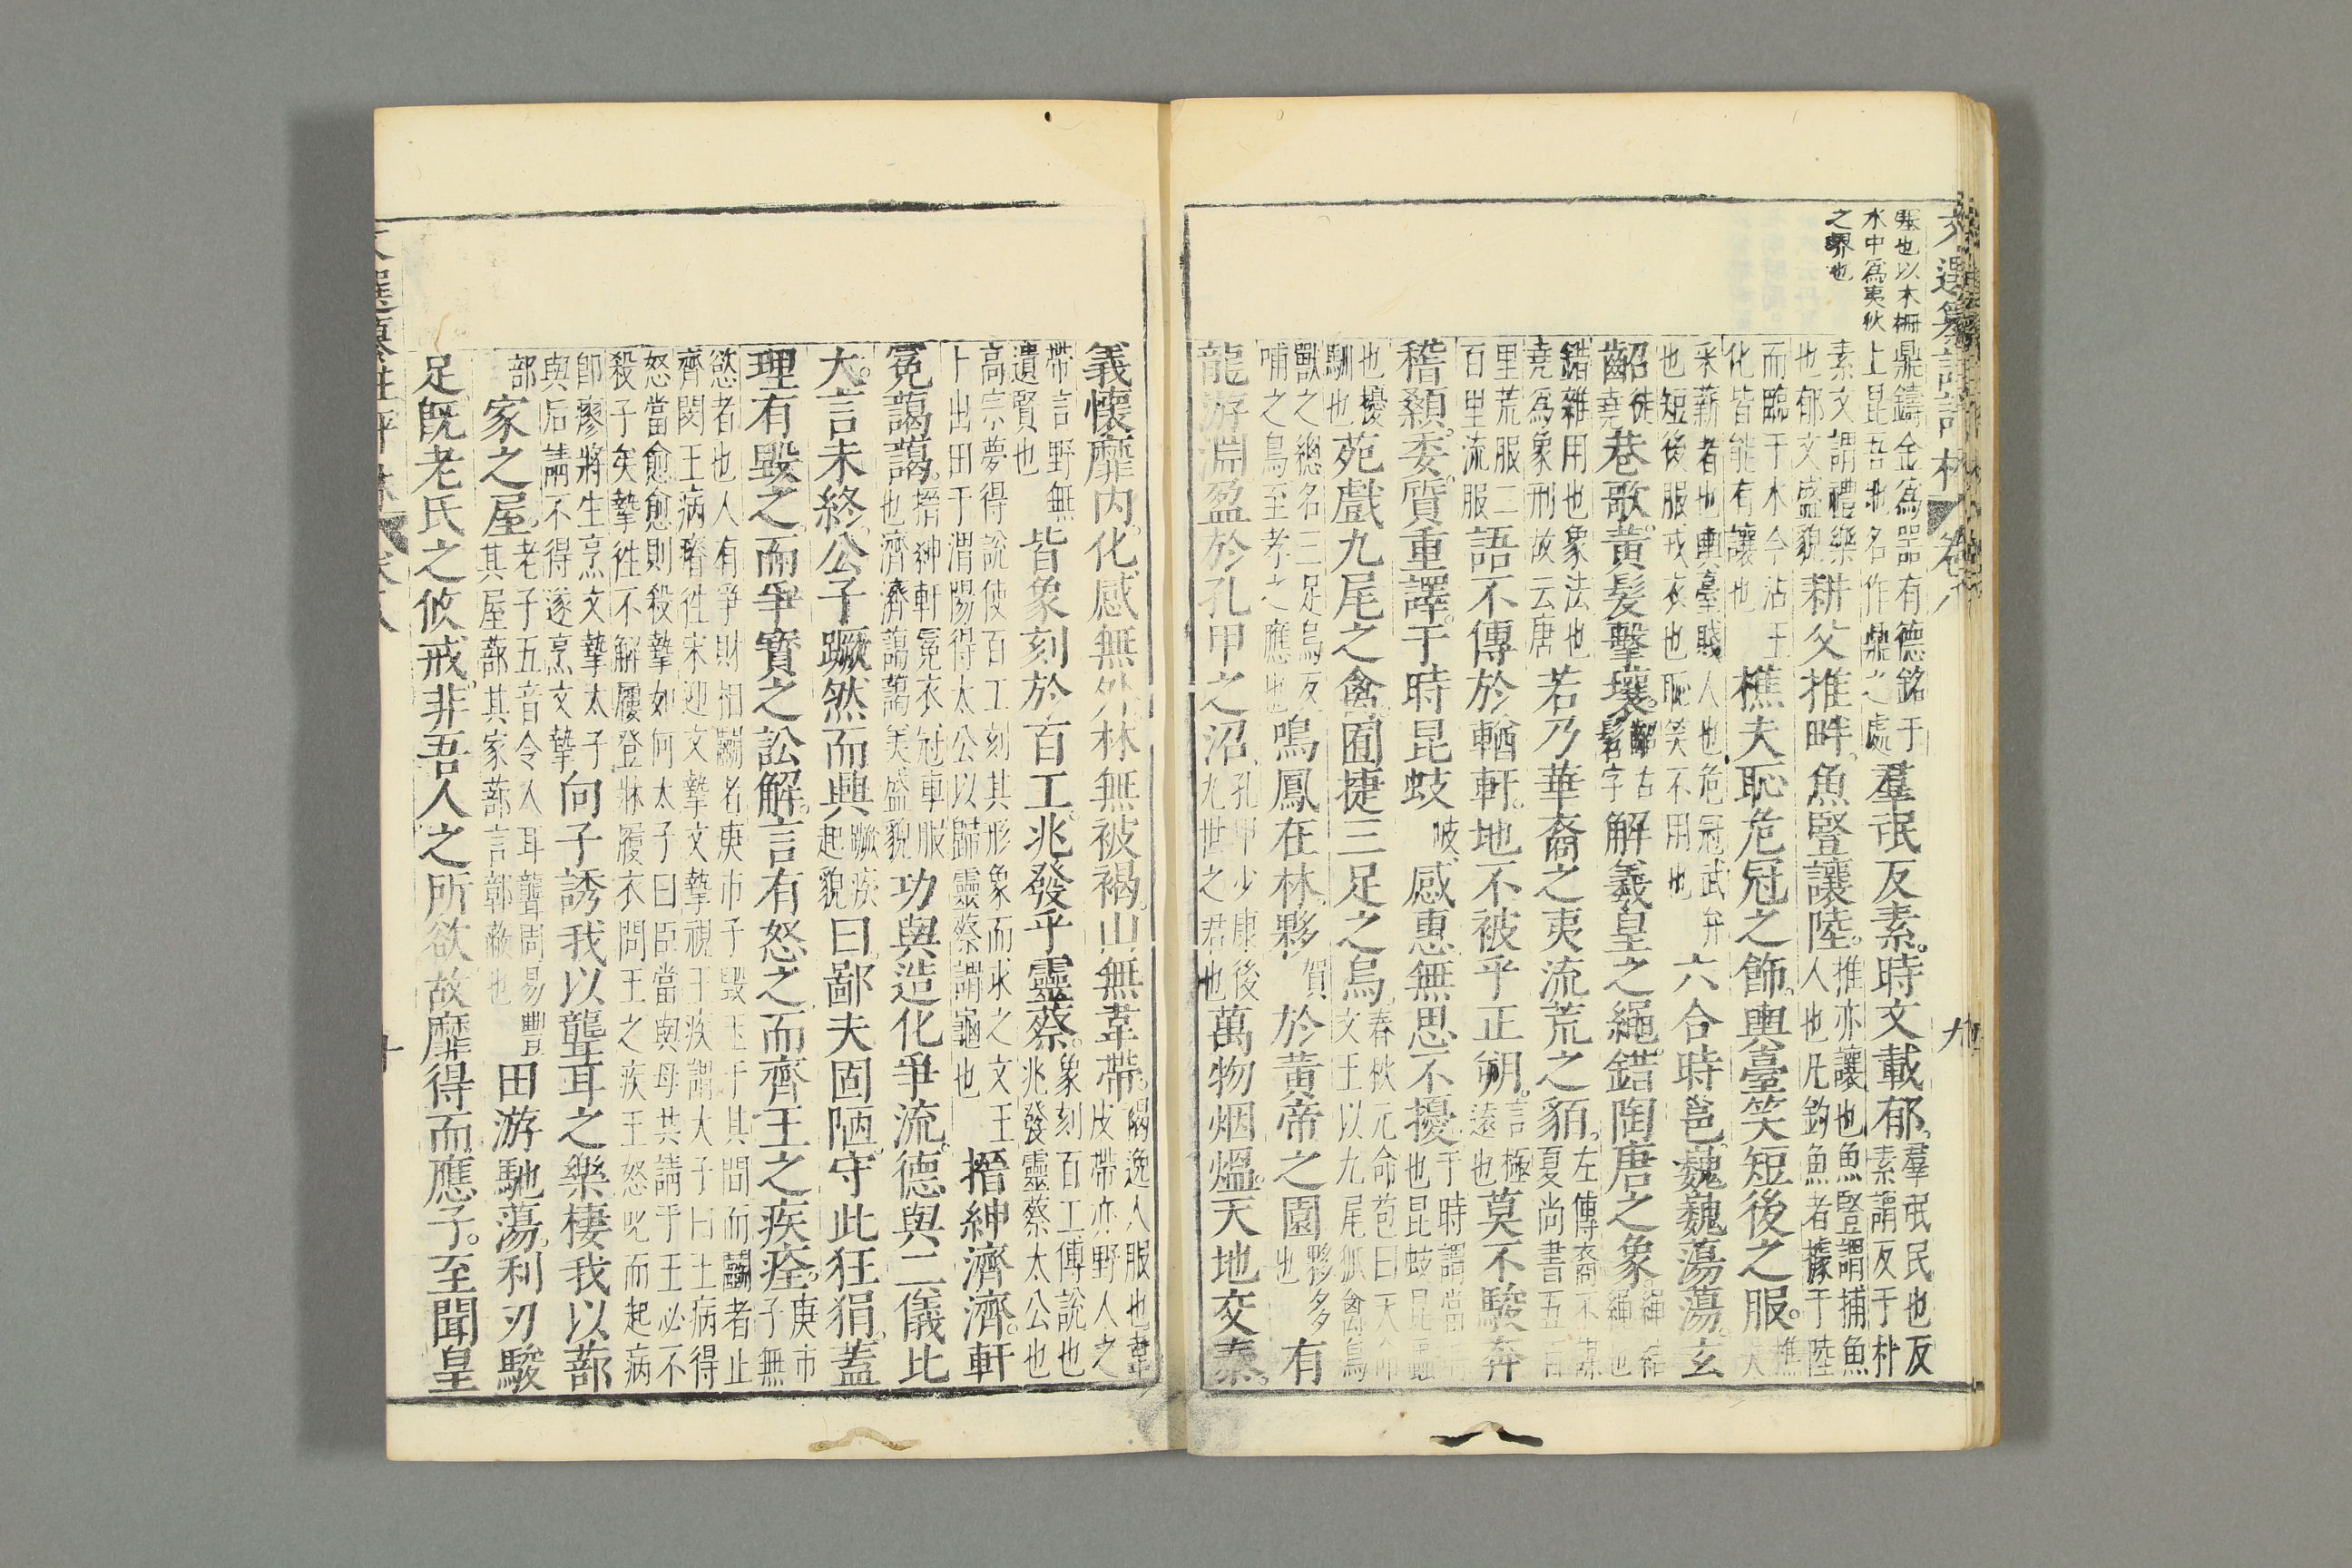 壘也以木柵
水中爲夷狄
之界也
鼎鑄金爲器有德銘于上昆吾地名作鼎之處羣氓反素。時文載郁。羣氓民也反素謂反于朴
素文謂禮樂也郁文盛貌耕父推畔。魚豎讓陸。推亦讓也魚豎謂捕魚人也凡釣魚者據于陸
而臨于水今沾王化皆能有讓也樵夫恥危冠之飾。輿臺笑短後之服。樵夫
采薪者也輿臺賤人也危冠武弁也短後服戎衣也恥笑不用也六合時邕。巍巍蕩蕩。玄
齠徒堯巷歌。黃髮擊壤。齠古髫字解羲皇之繩。錯陶唐之象。繩結繩也
錯雜用也象法也堯爲象刑故云唐若乃華裔之夷流荒之貊。左傳裔不謀夏尚書五百
里荒服二百里流服語不傳於輶軒。地不被乎正朔。言極遠也莫不駿奔
稽顙。委質重譯。于時昆蚑岐感惠。無思不擾。于時謂當時也昆蚑昆蟲
也擾馴也苑戲九尾之禽。囿捷三足之烏。春秋元命苞曰天命文王以九尾狐禽鳥
獸之總名三足烏反哺之鳥至孝之應也鳴鳳在林。夥賀於黃帝之園夥多也有
龍游淵盈於孔甲之沼。孔甲少康後九世之君也萬物烟熅。天地交泰。
義懷靡內。化感無外。林無被褐。山無韋帶。褐逸人服也韋皮帶亦野人之
帶言野無遺賢也皆象刻於百工。兆發乎靈蔡。象刻百工傅說也兆發靈蔡太公也
高宗夢得說使百工刻其形象而求之文王卜出田于渭陽得太公以歸靈蔡謂龜也搢紳濟濟。軒
冕藹藹。搢紳軒冕衣冠車服也濟濟藹藹美盛貌功與造化爭流。德與二儀比
大。言未終。公子蹶然而興蹶疾起貌曰。鄙夫固陋。守此狂狷。蓋
理有毀之。而爭寶之訟解。言有怒之。而齊王之疾痊。庚市子無
慾者也人有爭財相鬬名庚市子毀玉于其間而鬬者止齊閔王病瘠徃宋迎文摯文摯視王疾謂太子曰王病得
怒當愈愈則殺摯如何太子曰臣當與母共請于王必不殺子矣摯徃不解屨登牀履衣問王之疾王怒叱而起病
即瘳將生烹文摯太子與后請不得遂烹文摯向子誘我以聾耳之樂棲我以蔀
部家之屋。老子五音令人耳聾周易豐其屋蔀其家蔀言鄣蔽也田游馳蕩。利刃駿
足。既老氏之攸戒。非吾人之所欲故靡得而應子。至聞皇